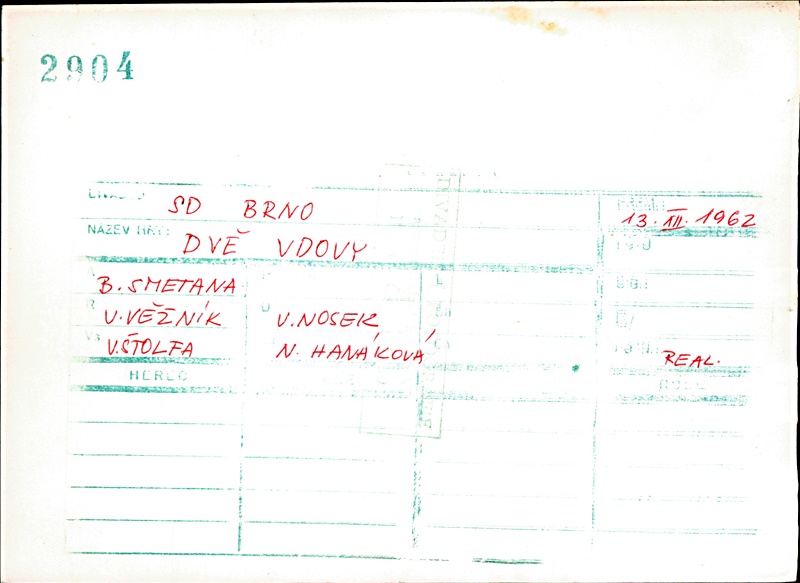 2904
SD BRNO
13. III. 1962
NÁZEV HRY:
DVĚ VDOVY
B. SMETANA
V. VĚŽNÍK
V. NOSEK
V. ŠTOLFA
N. HANÁKOVÁ
REAL.
HEREC